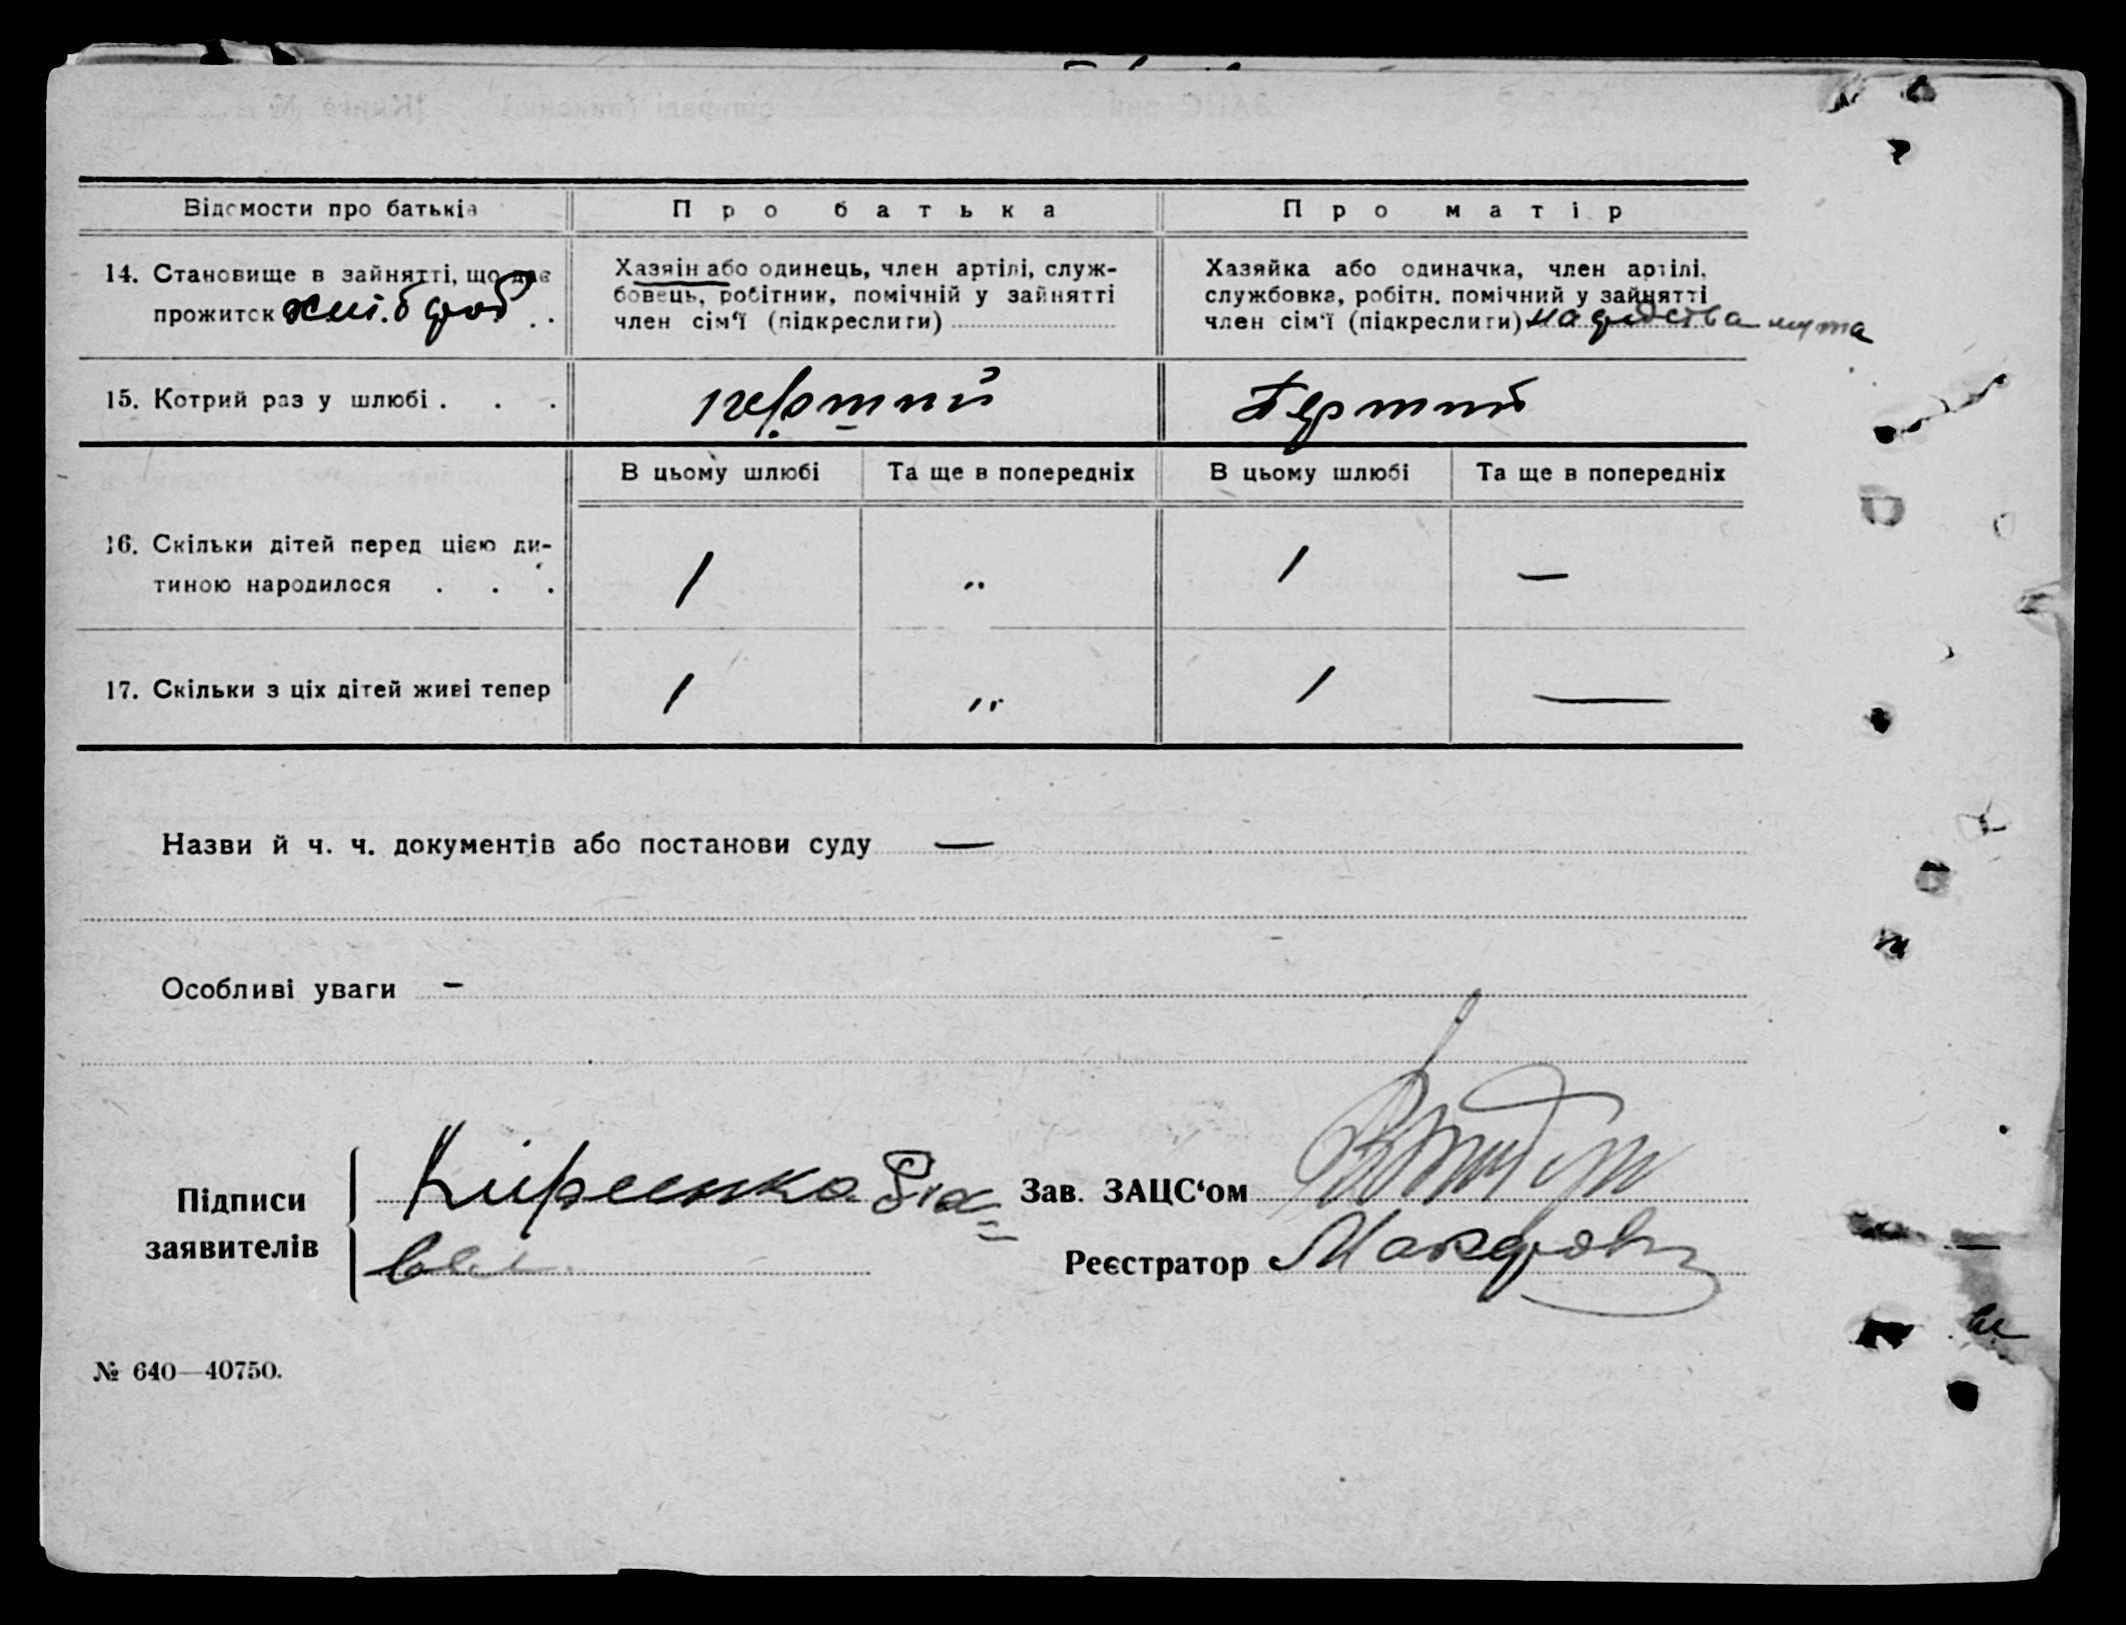 Відомости про батьків
Про батька
Про матір
14. Становище в зайнятті, що дає
прожиток
Хазяїн або одинець, член артілі, служ-
бовець, робітник, помічній у зайнятті
член сім'ї (підкреслити)
Хазяйка або одиначка, член артілі,
службовка, робітн. помічний у зайнятті
член сім'ї (підкреслити) на средства мужа
15. Котрий раз у шлюбі . . .
перший
Перший
В цьому шлюбі
Та ще в попередніх
В цьому шлюбі
Та ще в попередніх
16. Скільки дітей перед цією ди-
тиною народилося . . .
1 „ 1 —
17. Скільки з ціх дітей живі тепер
1 „ 1 —
Назви й ч. ч. документів або постанови суду —
Особливі уваги —
Підписи
заявителів
Зав. ЗАЦС‘ом
Реєстратор
№ 640—40750.